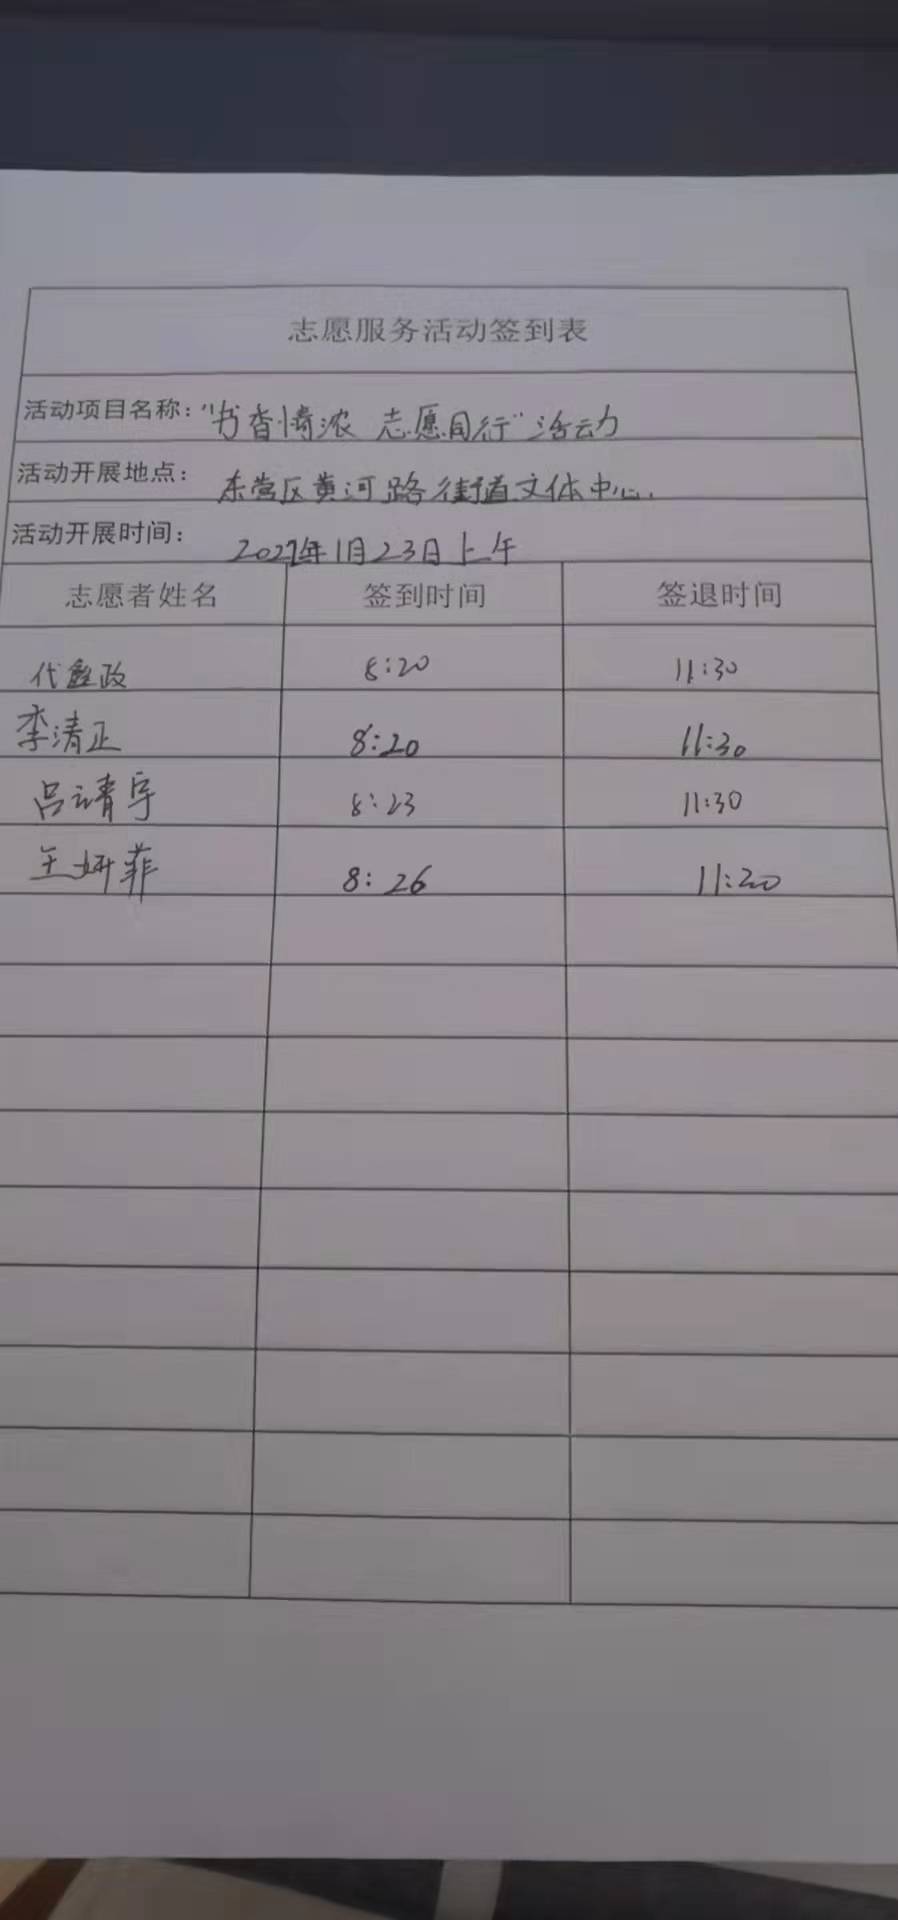 志愿服务活动签到表
活动项目名称：“书香情浓 志愿同行”活动
活动开展地点： 东营区黄河路街道文体中心.
活动开展时间： 1月23日上午
志愿者姓名 签到时间 签退时间
代鑫政 8:20 11:30
李清正 8:20 11:30
吕靖宇 8:23 11:30
王妍菲 8:26 11:20